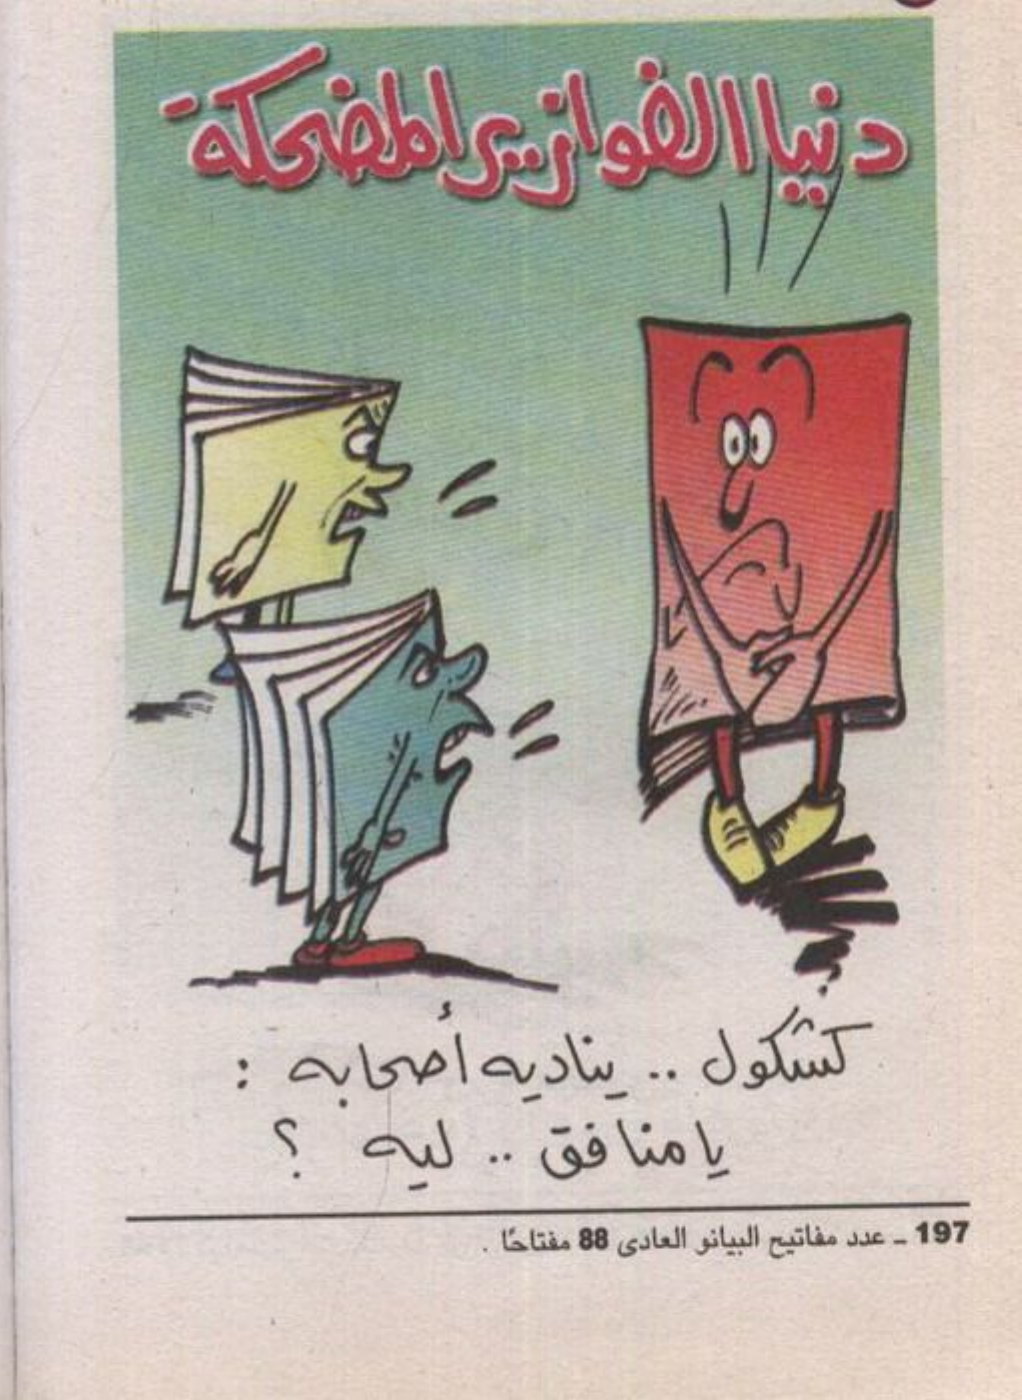 دنيا الفوازير المضحكة
كشكول .. يناديه أصحابه :
يا منافق .. ليه ؟
197 ـ عدد مفاتيح البيانو العادى 88 مفتاحًا .